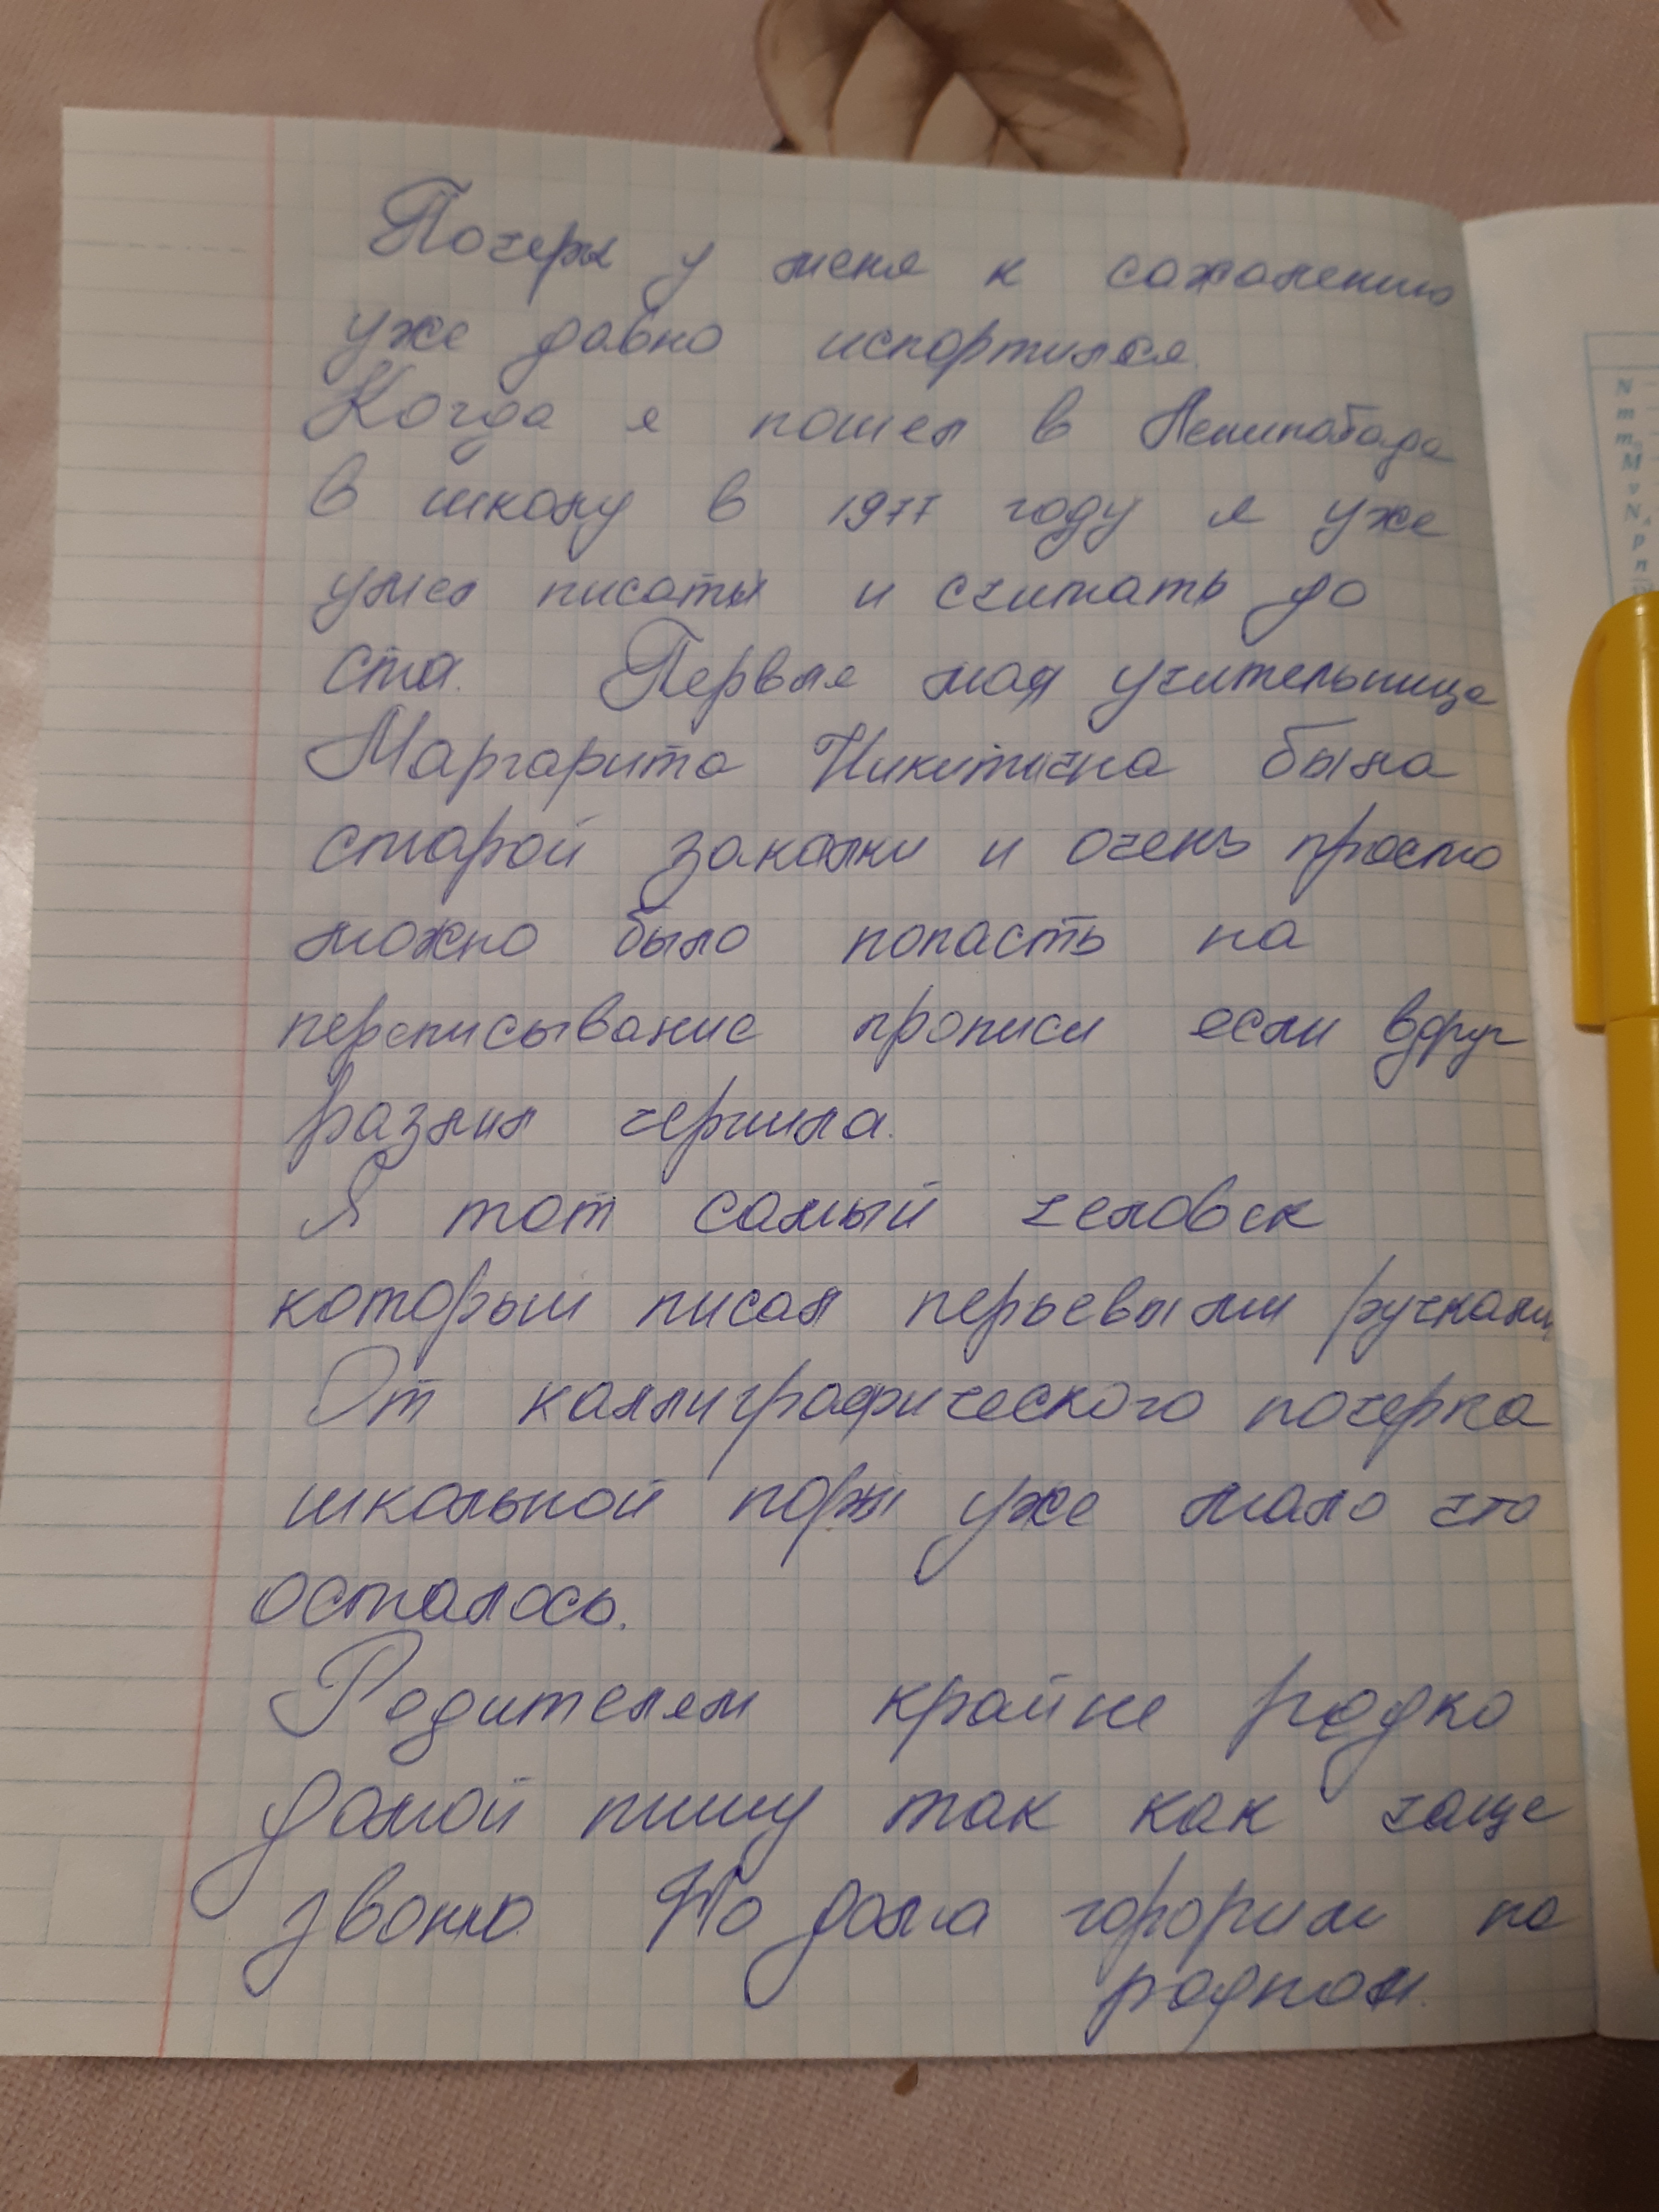 Почерк у меня к сожалению
уже давно испортился.
Когда я пошел в Ленинабаде
в школу в 1977 году я уже
умел писать и считать до
ста. Первая моя учительница
Маргарита Никитична была
старой закалки и очень просто
можно было попасть на
переписывание прописи если вдруг
разлил чернила.
Я тот самый человек
который писал перьевыми ручками
От каллиграфического почерка
школьной поры уже мало что
осталось.
Родителям крайне редко
домой пишу так как чаще
звоню. Но дома говорим на
родном.
N
m
m
M
v
N
p
n